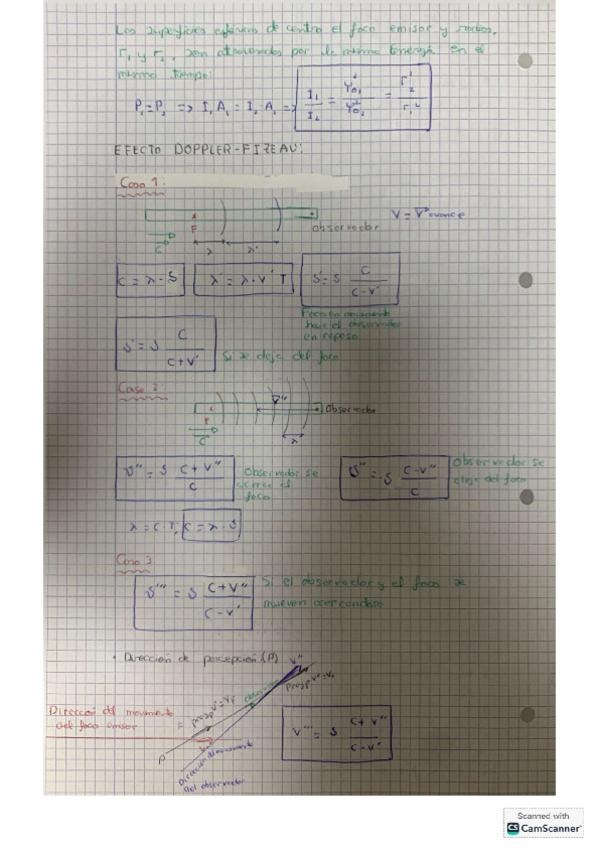 Las superficies esféricas de centro el foco emisor y radios,
r₁ y r₂, son atravesadas por la misma Energía en el
mismo tiempo:
P₁ = P₂ => I₁ A₁ = I₂ A₂ => I₁/I₂ = Y₀₁²/Y₀₂² = r₂²/r₁²
EFECTO DOPPLER-FIZEAU:
Caso 1:
V = V avance
F
Observador
C
λ λ'
C = λ · S
λ' = λ - V' T
S' = S C/(C - V')
Foco en movimiento
hacia el observador
en reposo
S' = S C/(C + V')
Si se aleja del foco
Caso 2:
V''
Observador
F
C
λ
S'' = S (C + V'')/C
Observador se
acerca al
foco
S'' = S (C - V'')/C
Observador se
aleja del foco
λ = C · T; C = λ · S
Caso 3
S''' = S (C + V'')/(C - V')
Si el observador y el foco se
mueven acercandose
· Dirección de percepción (P)
V''
Dirección del movimiento
del foco emisor
F
P
Dirección del movimiento
del observador
V''' = S (C + V'')/(C - V')
Scanned with
CS CamScanner